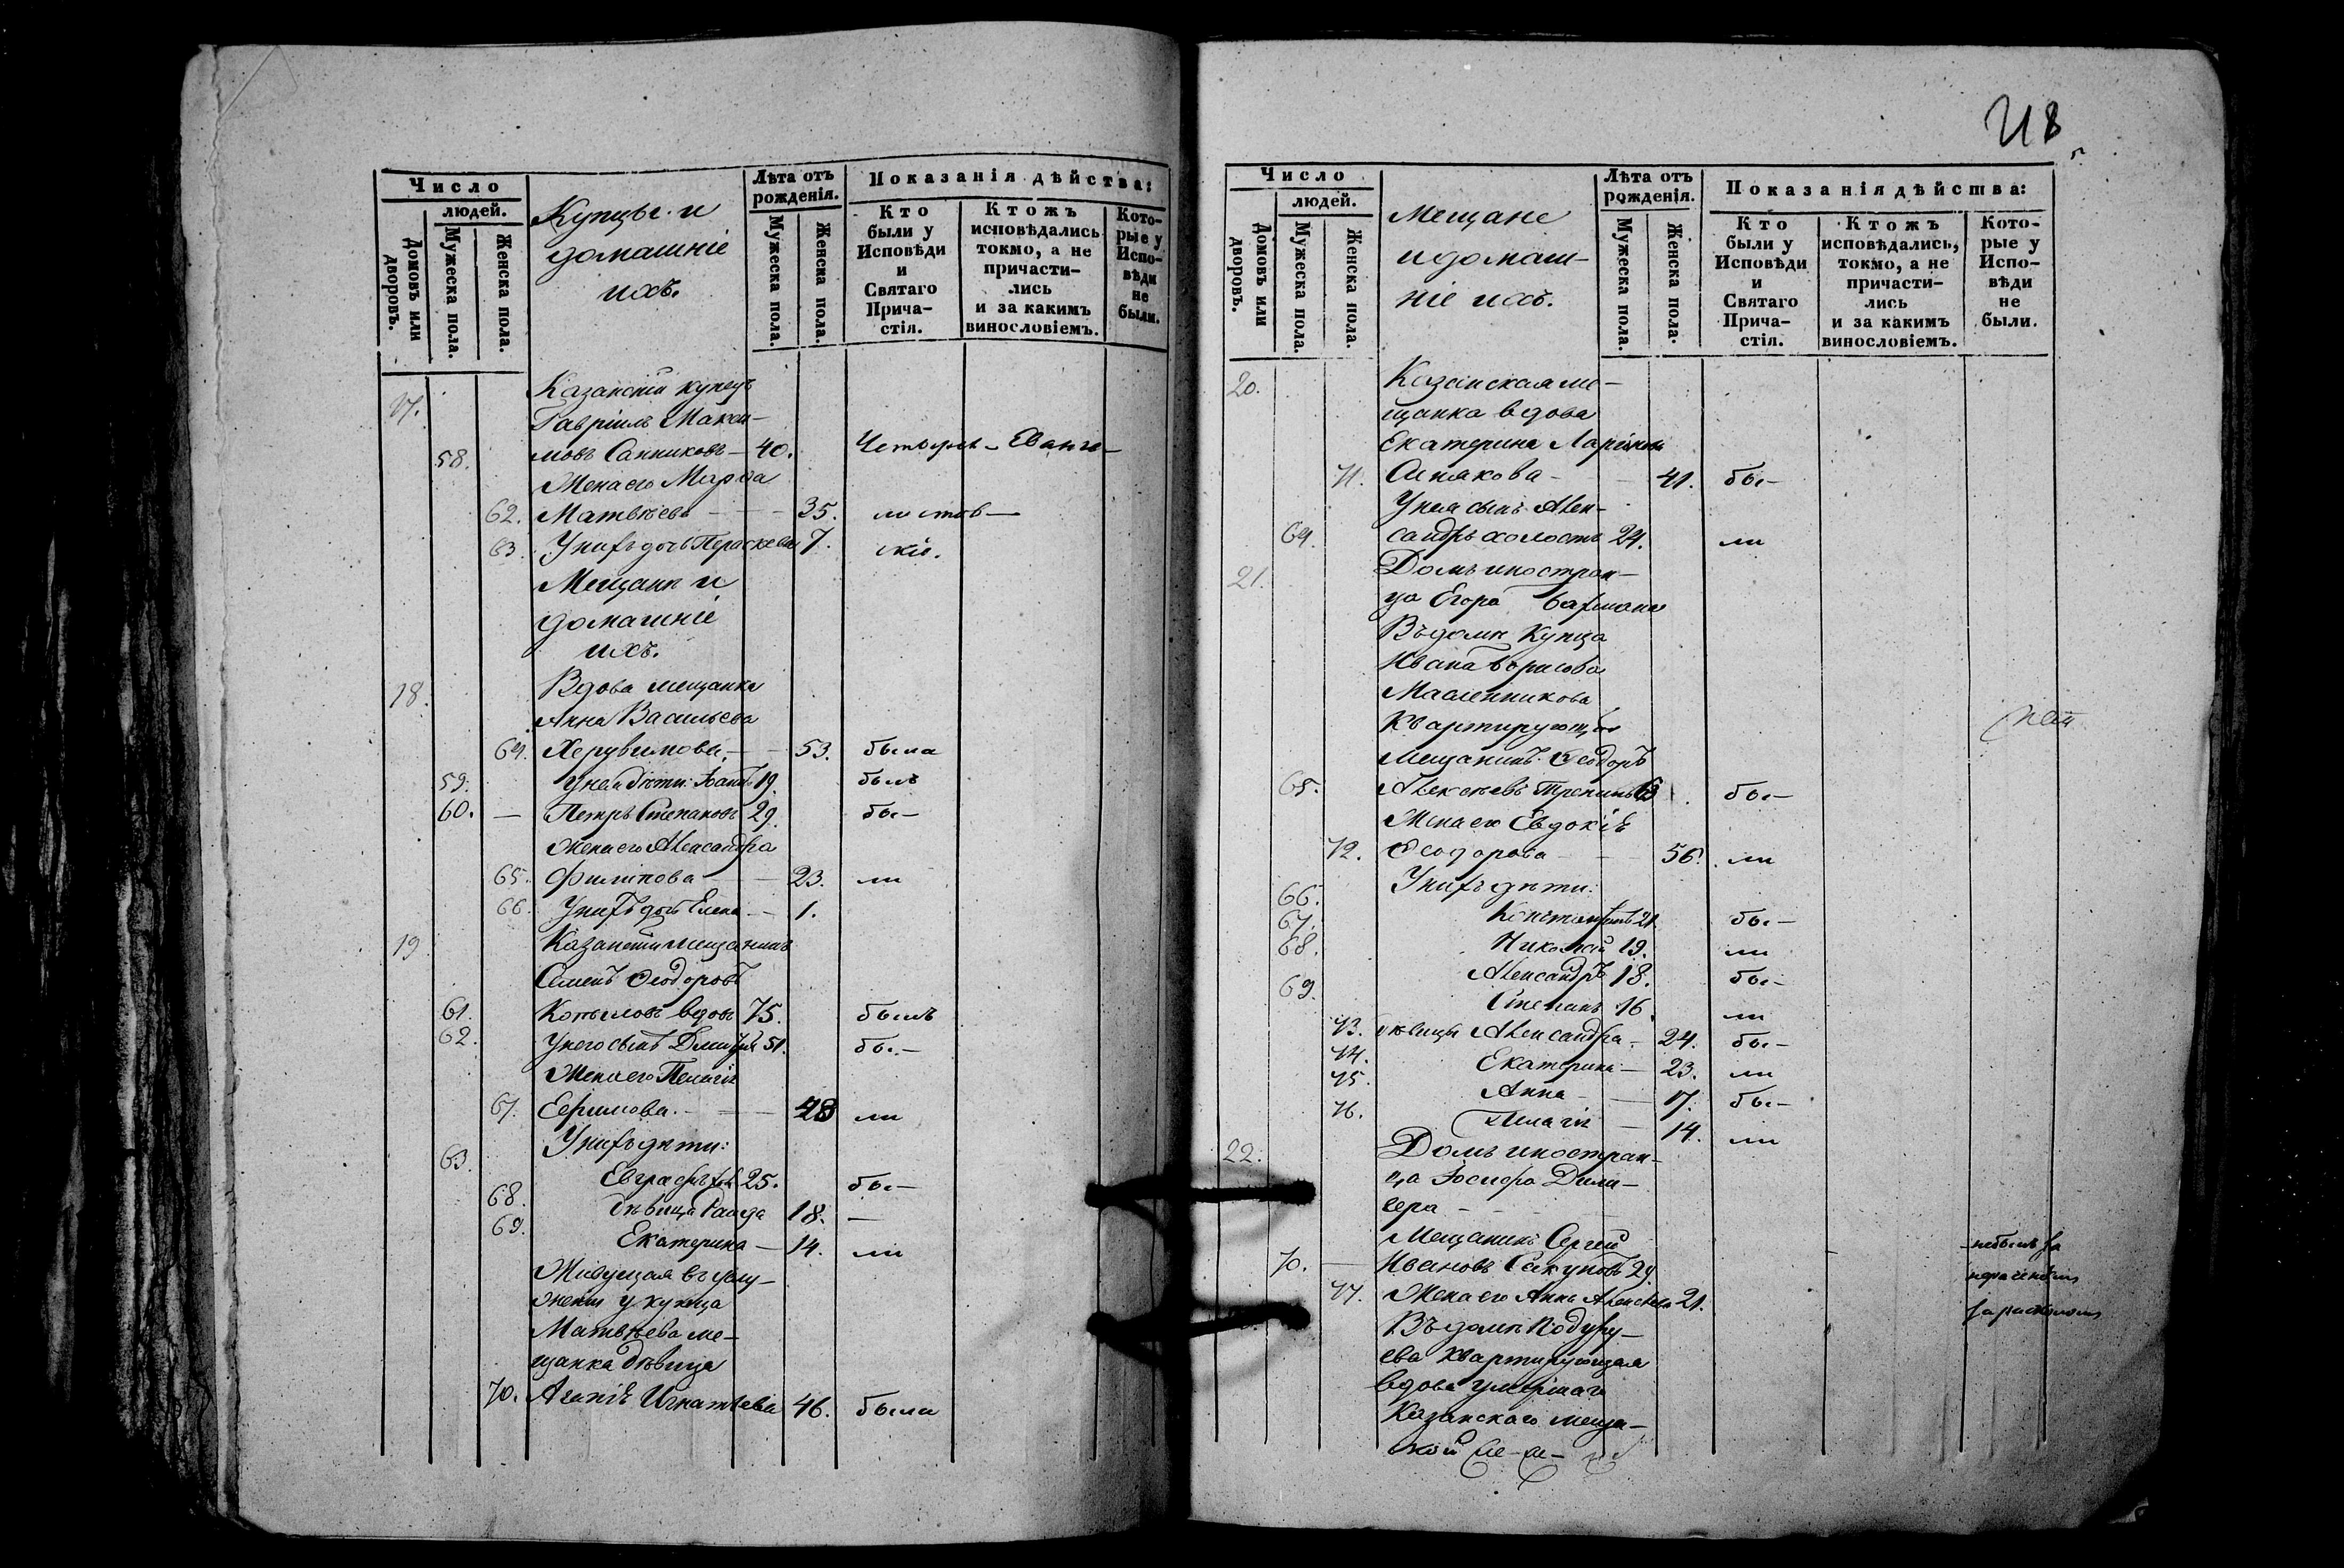 Число
людей.
Домовъ или дворовъ.
Мужеска пола.
Женска пола.
Купцы и
домашніе
ихъ.
Лѣта отъ рожденія.
Мужеска пола.
Женска пола.
Показанія дѣйства:
Кто были у Исповѣди и Святаго Прича-стія.
Ктожъ исповѣдались токмо, а не причасти-лись и за какимъ винословіемъ.
Кото-рые у Испо-вѣди не были.
17. Казанскій купецъ
Гавріилъ Макси-
58. мовъ Санниковъ – 40. Четыре – Еванге –
Жена его Марѳа
62. Матвѣева – 35. листов –
63. У нихъ дочь Параскева 7. скіе.
Мещане и
домашніе
ихъ.
18. Вдова мещанка
Анна Васильева
64. Херувимова – 53. была
59. У нея дѣти: 19. былъ
60. — Петръ Степановъ 29. бы –
Жена его Александра
65. Филипова 23. ли
66. У нихъ дочь Елена – 1.
19 Казанскій мещанинъ
Семенъ Ѳеодоровъ
61. Копыловъ вдовъ 75. былъ
62. У него сынъ Дмитрій 51. бы –
Жена его Пелагія
67. Ефимова. – 48 ли
У нихъ дѣти:
63. Евграфъ 25. бы –
68. дѣвица 18. —
69. Екатерина – 14. ли
Живущая въ услу-
женіи у купца
Матвѣева ме-
щанка дѣвица
70. Агапія Игнатьева 46. была
218
Число
людей.
Домовъ или дворовъ.
Мужеска пола.
Женска пола.
Мещане
и домаш-
ніе ихъ.
Лѣта отъ рожденія.
Мужеска пола.
Женска пола.
Показанія дѣйства:
Кто были у Исповѣди и Святаго Прича-стія.
Ктожъ исповѣдались, токмо, а не причасти-лись и за какимъ винословіемъ.
Кото-рые у Испо-вѣди не были.
20. Казанская ме-
щанка вдова
Екатерина
71. – 41. бы –
У нея сынъ Алек-
64. сандръ холостъ 24. ли
21. Домъ иностран-
ца Егора
Въ домѣ купца
Ивана Борисова
Масленникова
Квартирующій
мещанинъ Ѳеодоръ
65. Алексѣевъ 63. бы –
Жена его Евдокія
72. Ѳеодорова – 56. ли
У нихъ дѣти:
66. Константинъ 21. бы –
67. Николай 19. ли
68. Александръ 18. бы –
69. Степанъ 16. ли
73. дѣвицы Александра – 24. бы –
74. Екатерина – 23. ли
75. Анна – 17. бы –
76. Пелагія – 14. ли
22. Домъ иностран-
ца Іосифа Дили-
вера –
Мещанинъ Сергей
70. — Ивановъ 29. небылъ за
77. Жена его Анна Алексѣева 21.
Въ домѣ
ева квартирующая
вдова умершаго
Казанскаго меща-